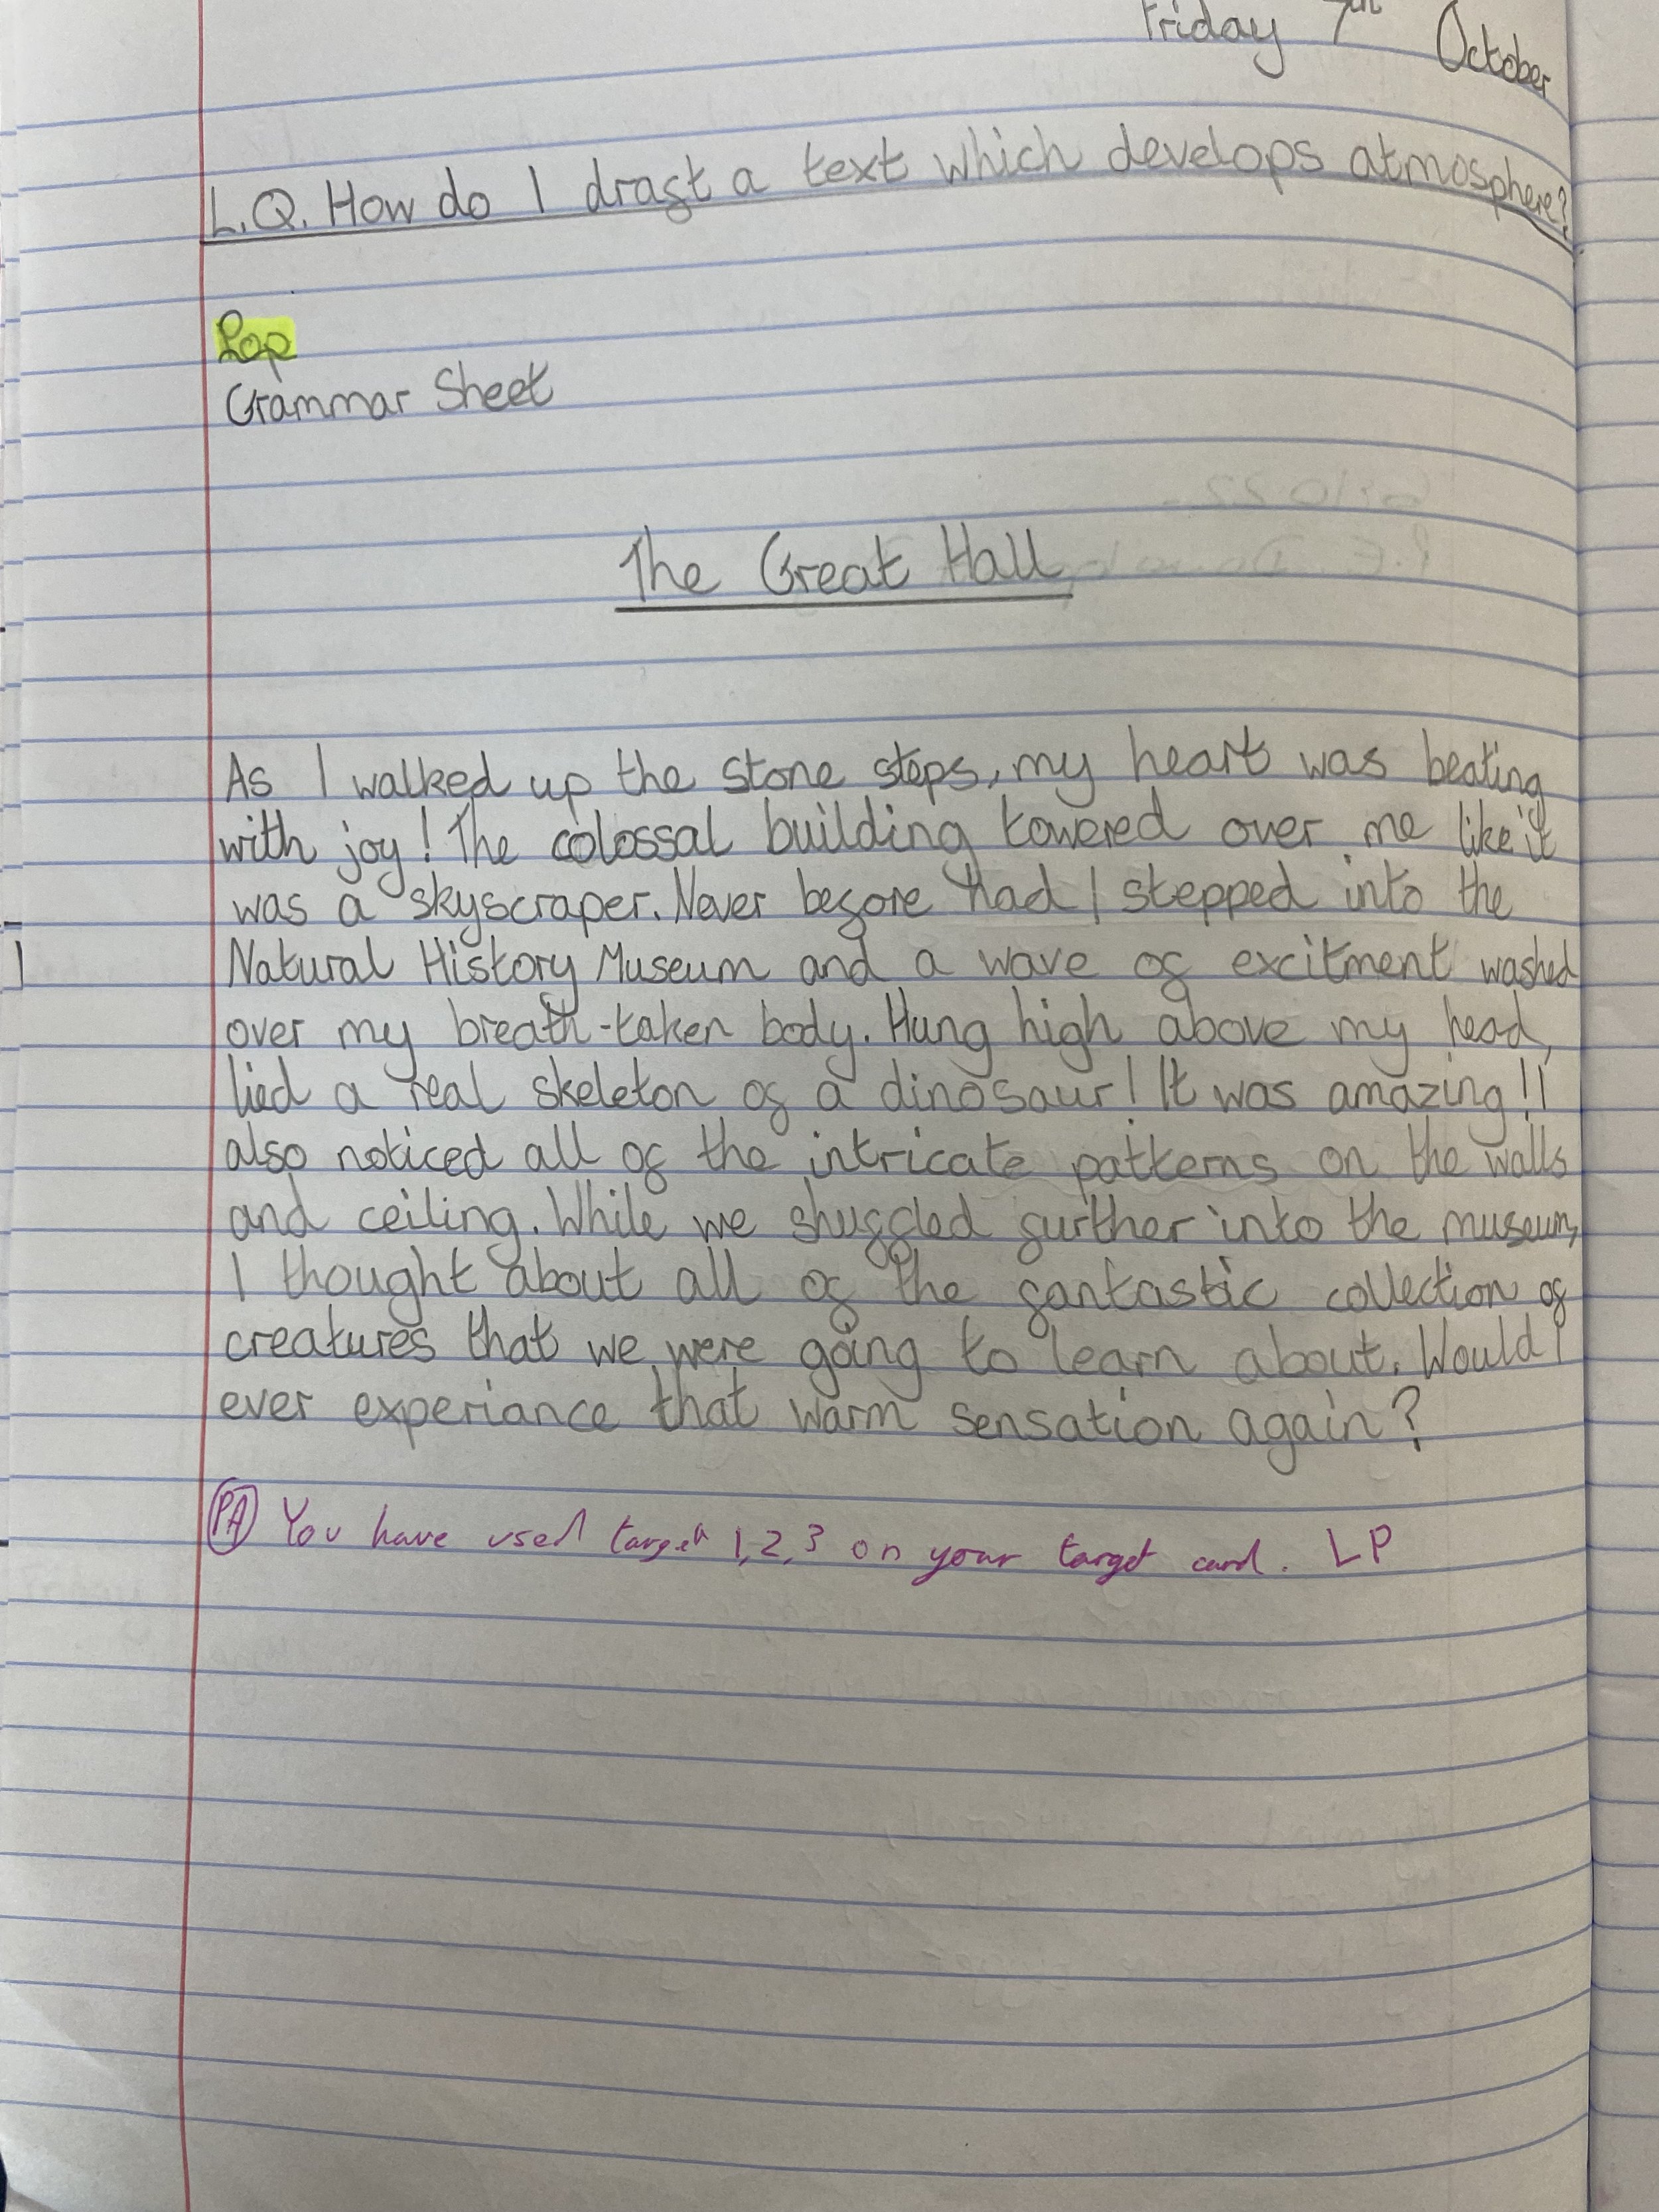 Friday 7th October
L.Q. How do I draft a text which develops atmosphere?
Pop
Grammar Sheet
The Great Hall
As I walked up the stone steps, my heart was beating
with joy! The colossal building towered over me like it
was a skyscraper. Never before had I stepped into the
Natural History Museum and a wave of excitment washed
over my breath-taken body. Hung high above my head,
lied a real skeleton of a dinosaur! It was amazing! I
also noticed all of the intricate patterns on the walls
and ceiling. While we shuffled further into the museum,
I thought about all of the fantastic collection of
creatures that we were going to learn about. Would I
ever experiance that warm sensation again?
PA You have used target 1,2,3 on your target card. LP